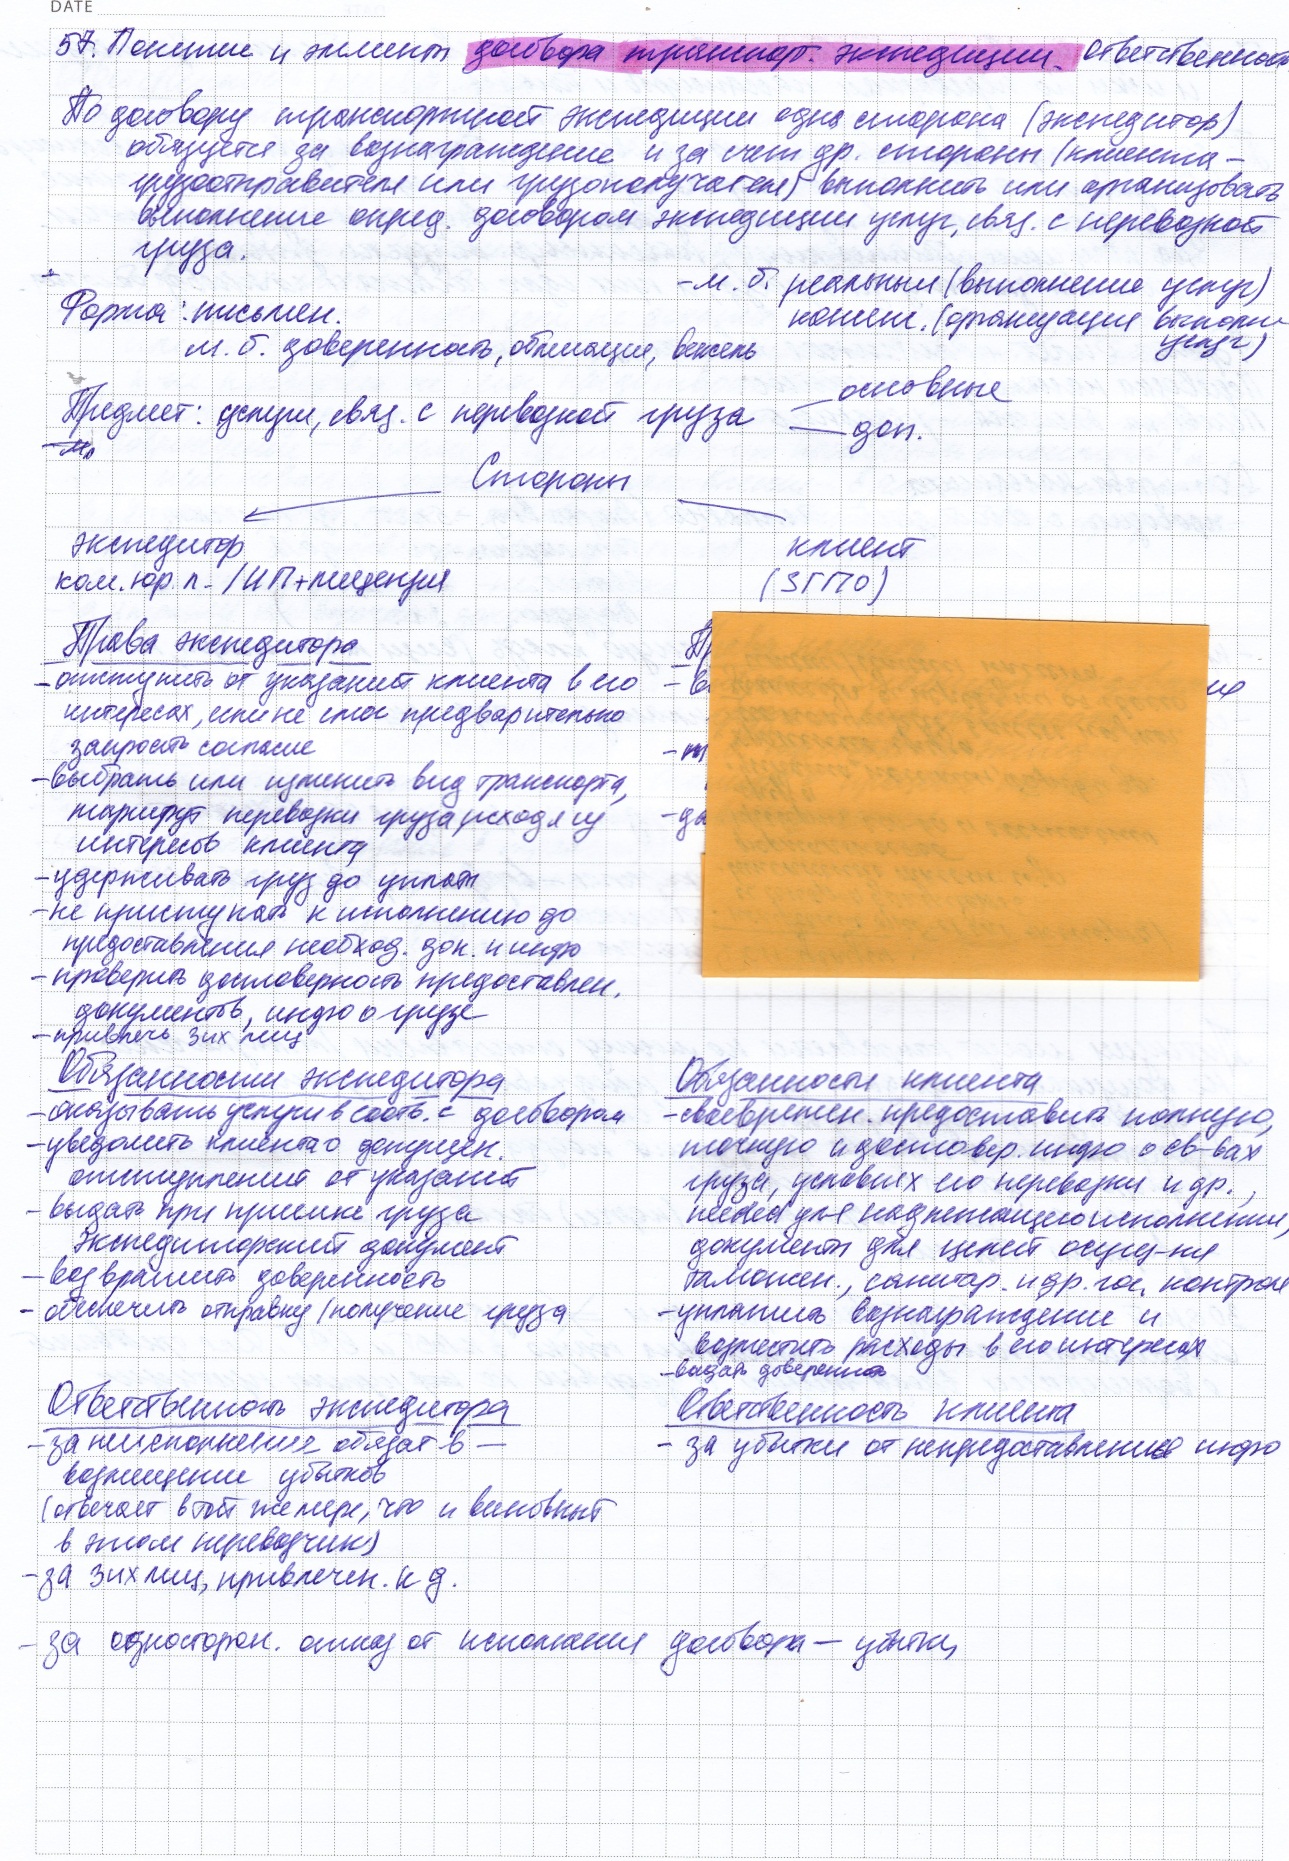 DATE
57. Понятие и элементы договора транспорт. экспедиции. Ответственность
По договору транспортной экспедиции одна сторона (экспедитор)
обязуется за вознаграждение и за счет др. стороны (клиента –
грузоотправителя или грузополучателя) выполнить или организовать
выполнение опред. договором экспедиции услуг, связ. с перевозкой
груза.
- м. б. реальным (выполнение услуг)
консенс. (организация выполн
услуг)
Форма: письмен.
м. б. доверенность, облигация, вексель
Предмет: услуги, связ. с перевозкой груза
основные
доп.
Стороны
экспедитор
ком. юр. л. / ИП + лицензия
клиент
(ЗГПО)
Права экспедитора
- отступить от указаний клиента в его
интересах, если не смог предварительно
запросить согласие
- выбрать или изменить вид транспорта,
маршрут перевозки груза, исходя из
интересов клиента
- удерживать груз до уплаты
- не приступать к исполнению до
предоставления необход. док. и инфо
- проверить достоверность предоставлен.
документов, инфо о грузе
- привлечь 3их лиц
Обязанности экспедитора
- оказывать услуги в соотв. с договором
- уведомить клиента о допущен.
отступлений от указаний
- выдать при приемке груза
экспедиторский документ
- возвратить доверенность
- обеспечить отправку / получение груза
Обязанности клиента
- своевремен. предоставить полную,
точную и достовер. инфо о св-вах
груза, условиях его перевозки и др.,
необх для надлежащего исполнения,
документы для целей осущ-ния
таможен., санитар. и др. гос. контроля
- уплатить вознаграждение и
возместить расходы в его интересах
- выдать доверенность
Ответственность экспедитора
- за неисполнение обязат-в —
возмещение убытков
(отвечает в той же мере, что и виновный
в этом перевозчик)
- за 3их лиц, привлечен. к д.
Ответственность клиента
- за убытки от непредоставления инфо
- за односторон. отказ от исполнения договора – убытки